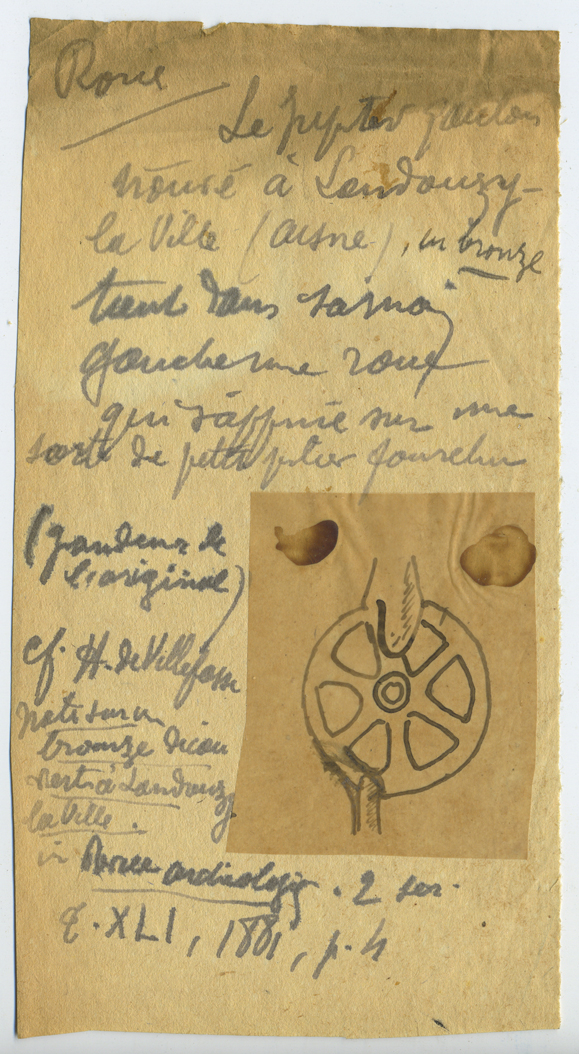 Roue
Le Jupiter gaulois
trouvé à Landouzy-
la Ville (Aisne), en bronze
tient dans sa main
gauche une roue
qui s'appuie sur une
sorte de petit pilier fourchu
(grandeur de
l'original)
cf. H. de Villefosse
note sur un
bronze décou
vert à Landouzy
la Ville.
in Revue archéologiq. 2 ser.
t. XLI, 1881, p. 4